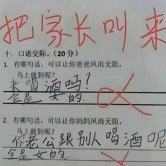 把家长叫来
十、口语交际。（20分）
1. 有哪句话，可以让你爸爸风雨无阻，
马上就到呢？
来喝酒吗？
全是女的
2. 有哪句话，可以让你妈妈风雨无阻，
马上就到呢？
你老公跟别人喝酒呢
全是女的